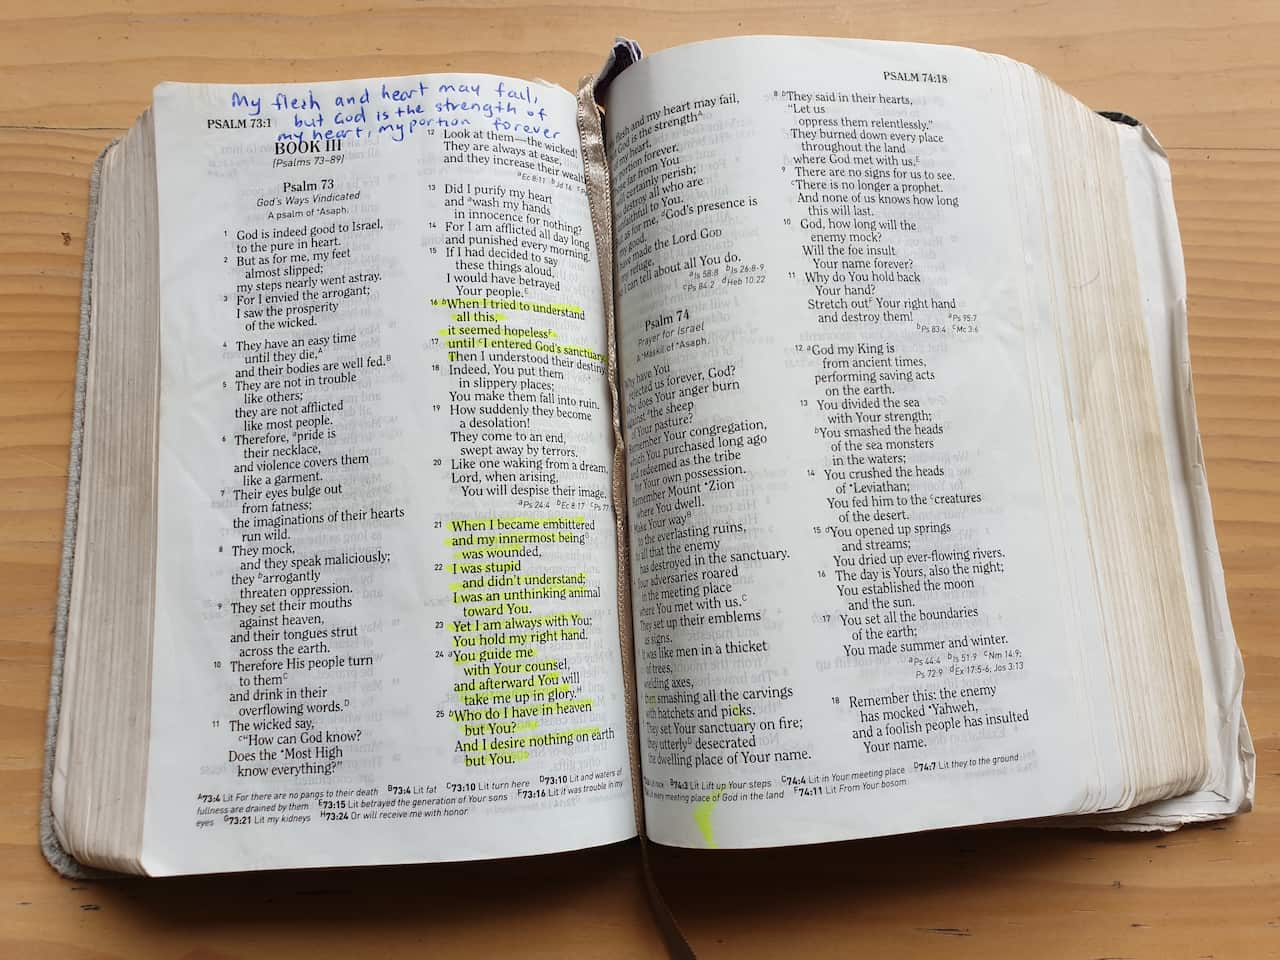 My flesh and heart may fail,
but God is the strength of
my heart, my portion forever
PSALM 73:1
BOOK III
[Psalms 73–89]
Psalm 73
God's Ways Vindicated
A psalm of •Asaph.
1 God is indeed good to Israel,
to the pure in heart.
2 But as for me, my feet
almost slipped;
my steps nearly went astray.
3 For I envied the arrogant;
I saw the prosperity
of the wicked.
4 They have an easy time
until they die,A
and their bodies are well fed.B
5 They are not in trouble
like others;
they are not afflicted
like most people.
6 Therefore, apride is
their necklace,
and violence covers them
like a garment.
7 Their eyes bulge out
from fatness;
the imaginations of their hearts
run wild.
8 They mock,
and they speak maliciously;
they barrogantly
threaten oppression.
9 They set their mouths
against heaven,
and their tongues strut
across the earth.
10 Therefore His people turn
to themC
and drink in their
overflowing words.D
11 The wicked say,
c"How can God know?
Does the •Most High
know everything?"
12 Look at them—the wicked!
They are always at ease,
and they increase their wealth
aEc 8:11 bJd 16
13 Did I purify my heart
and awash my hands
in innocence for nothing?
14 For I am afflicted all day long
and punished every morning.
15 If I had decided to say
these things aloud,
I would have betrayed
Your people.E
16 bWhen I tried to understand
all this,
it seemed hopelessF
17 until cI entered God's sanctuary.
Then I understood their destiny
18 Indeed, You put them
in slippery places;
You make them fall into ruin.
19 How suddenly they become
a desolation!
They come to an end,
swept away by terrors.
20 Like one waking from a dream,
Lord, when arising,
You will despise their image.
aPs 24:4 bEc 8:17 cPs 77
21 When I became embittered
and my innermost beingG
was wounded,
22 I was stupid
and didn't understand;
I was an unthinking animal
toward You.
23 Yet I am always with You;
You hold my right hand.
24 aYou guide me
with Your counsel,
and afterward You will
take me up in glory.H
25 bWho do I have in heaven
but You?
And I desire nothing on earth
but You.
A73:4 Lit For there are no pangs to their death B73:4 Lit fat C73:10 Lit turn here D73:10 Lit and waters of
fullness are drained by them E73:15 Lit betrayed the generation of Your sons F73:16 Lit it was trouble in my
eyes G73:21 Lit my kidneys H73:24 Or will receive me with honor
PSALM 74:18
flesh and my heart may fail,
God is the strengthA
my heart,
portion forever.
far from You
certainly perish;
destroy all who are
unfaithful to You.
as for me, dGod's presence is
my good.
have made the Lord GOD
my refuge,
I can tell about all You do.
aIs 58:8 bIs 26:8-9
cPs 84:2 dHeb 10:22
Psalm 74
Prayer for Israel
A •Maskil of •Asaph.
Why have You
rejected us forever, God?
Why does Your anger burn
against athe sheep
of Your pasture?
Remember Your congregation,
which You purchased long ago
and redeemed as the tribe
for Your own possession.
Remember Mount •Zion
where You dwell.
Make Your wayB
to the everlasting ruins,
to all that the enemy
has destroyed in the sanctuary.
Your adversaries roared
in the meeting place
where You met with us.C
They set up their emblems
as signs.
It was like men in a thicket
of trees,
wielding axes,
then smashing all the carvings
with hatchets and picks.
They set Your sanctuary on fire;
they utterlyD desecrated
the dwelling place of Your name.
8 bThey said in their hearts,
"Let us
oppress them relentlessly."
They burned down every place
throughout the land
where God met with us.E
9 There are no signs for us to see.
cThere is no longer a prophet.
And none of us knows how long
this will last.
10 God, how long will the
enemy mock?
Will the foe insult
Your name forever?
11 Why do You hold back
Your hand?
Stretch outF Your right hand
and destroy them!
aPs 95:7
bPs 83:4 cMc 3:6
12 aGod my King is
from ancient times,
performing saving acts
on the earth.
13 You divided the sea
with Your strength;
bYou smashed the heads
of the sea monsters
in the waters;
14 You crushed the heads
of •Leviathan;
You fed him to the ccreatures
of the desert.
15 dYou opened up springs
and streams;
You dried up ever-flowing rivers.
16 The day is Yours, also the night;
You established the moon
and the sun.
17 You set all the boundaries
of the earth;
You made summer and winter.
aPs 44:4 bIs 51:9 cNm 14:9;
Ps 72:9 dEx 17:5-6; Jos 3:13
18 Remember this: the enemy
has mocked •Yahweh,
and a foolish people has insulted
Your name.
rock B74:3 Lit Lift up Your steps C74:4 Lit in Your meeting place D74:7 Lit they to the ground
every meeting place of God in the land F74:11 Lit From Your bosom